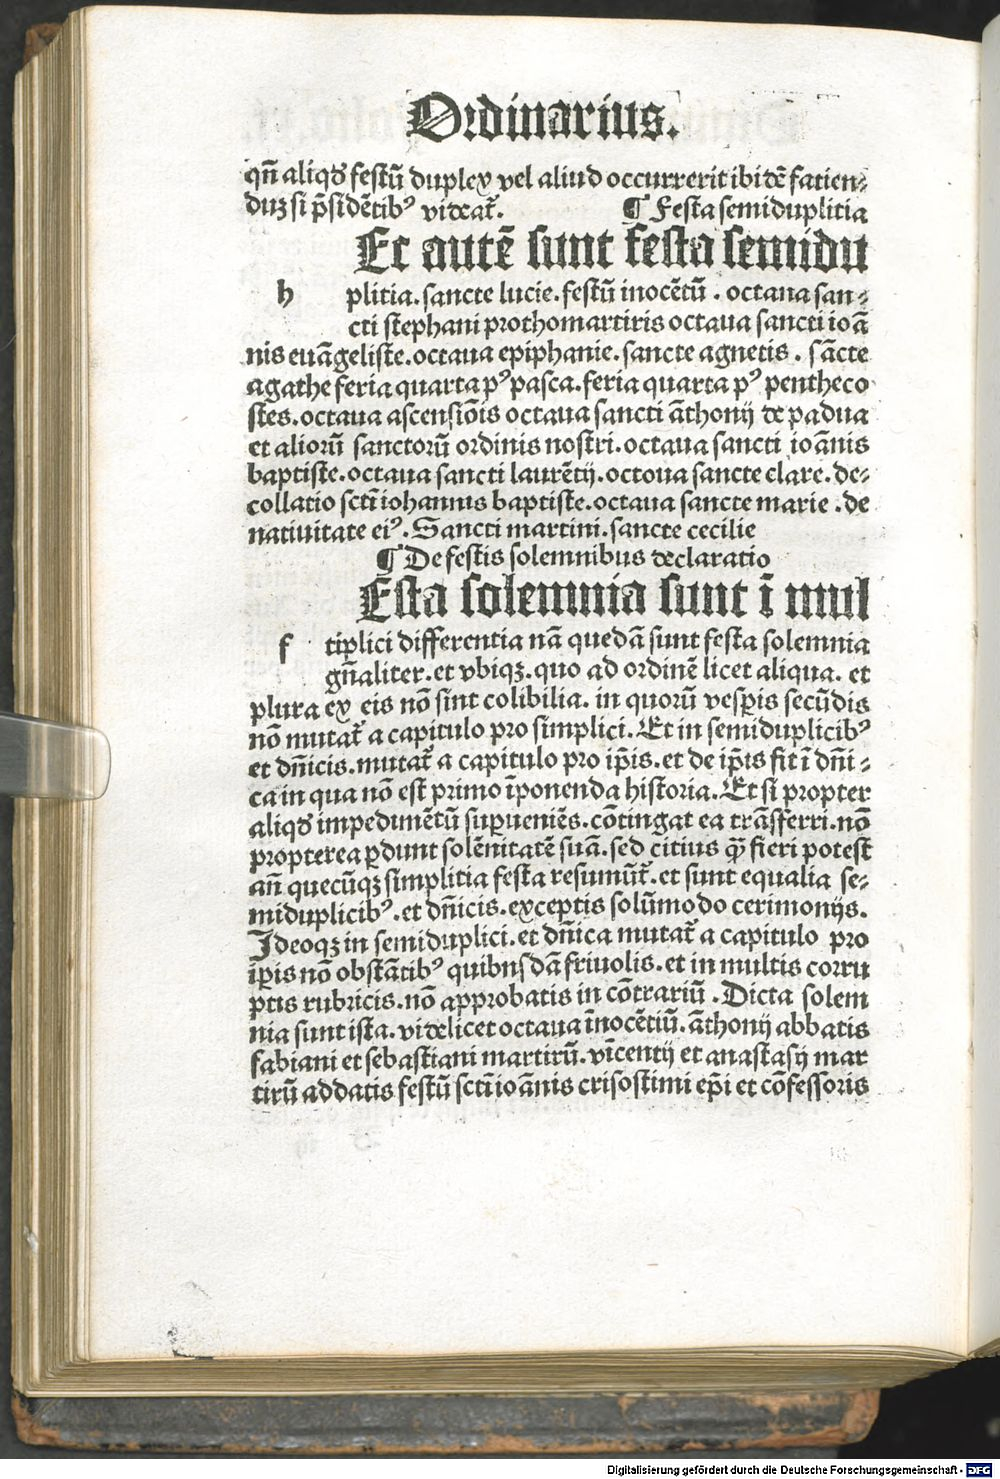 Ordinarius.
qn̄ aliqď festū duplex vel aliud occurrerit ibidē facien⸗
duꝫ si p̄sidētibꝰ videat᷑. ¶ Festa semiduplicia
Ec autē sunt festa semidu
h plicia. sancte lucie. festū inocētū. octaua san⸗
cti stephani prothomartiris octaua sancti ioā
nis euāgeliste. octaua epiphanie. sancte agnetis. sācte
agathe feria quarta pꝰ pasca. feria quarta pꝰ pentheco
stes. octaua ascensiōis octaua sancti āthonij de padua
et aliorū sanctorū ordinis nostri. octaua sancti ioānis
baptiste. octaua sancti laurētij. octoua sancte clare. de⸗
collatio sctī iohannus baptiste. octaua sancte marie. de
natiuitate eiꝰ. Sancti martini. sancte cecilie
¶ De festis solemnibus declaratio
Esta solemnia sunt ī mul
f tiplici differentia nā quedā sunt festa solemnia
gn̄aliter. et vbiqꝫ. quo ad ordinē licet aliqua. et
plura ex eis nō sint colibilia. in quorū vesp̄is secūdis
nō mutat᷑ a capitulo pro simplici. Et in semiduplicibꝰ
et dn̄icis. mutat᷑ a capitulo pro ip̄is. et de ip̄is fit ī dn̄i⸗
ca in qua nō est primo īponenda historia. Et si propter
aliqď impedimētū suꝑueniēs. cōtingat ea trāsferri. nō
propterea ꝑdunt solēnitatē suā. sed citius qꝫ̄ fieri potest
an̄ quecūqꝫ simplitia festa resumūt᷑. et sunt equalia se⸗
miduplicibꝰ. et dn̄icis. exceptis solūmodo cerimonijs.
Ideoqꝫ in semiduplici. et dn̄ica mutat᷑ a capitulo pro
ip̄is nō obstātibꝰ quibnsdā friuolis. et in multis corru
ptis rubricis. nō approbatis in cōtrariū. Dicta solem
nia sunt ista. videlicet octaua īnocētiū. āthonij abbatis
fabiani et sebastiani martirū. vīcentij et anastasij mar
tirū addatis festū sctī ioānis crisostimi ep̄i et cōfessoris
Digitalisierung gefördert durch die Deutsche Forschungsgemeinschaft - DFG